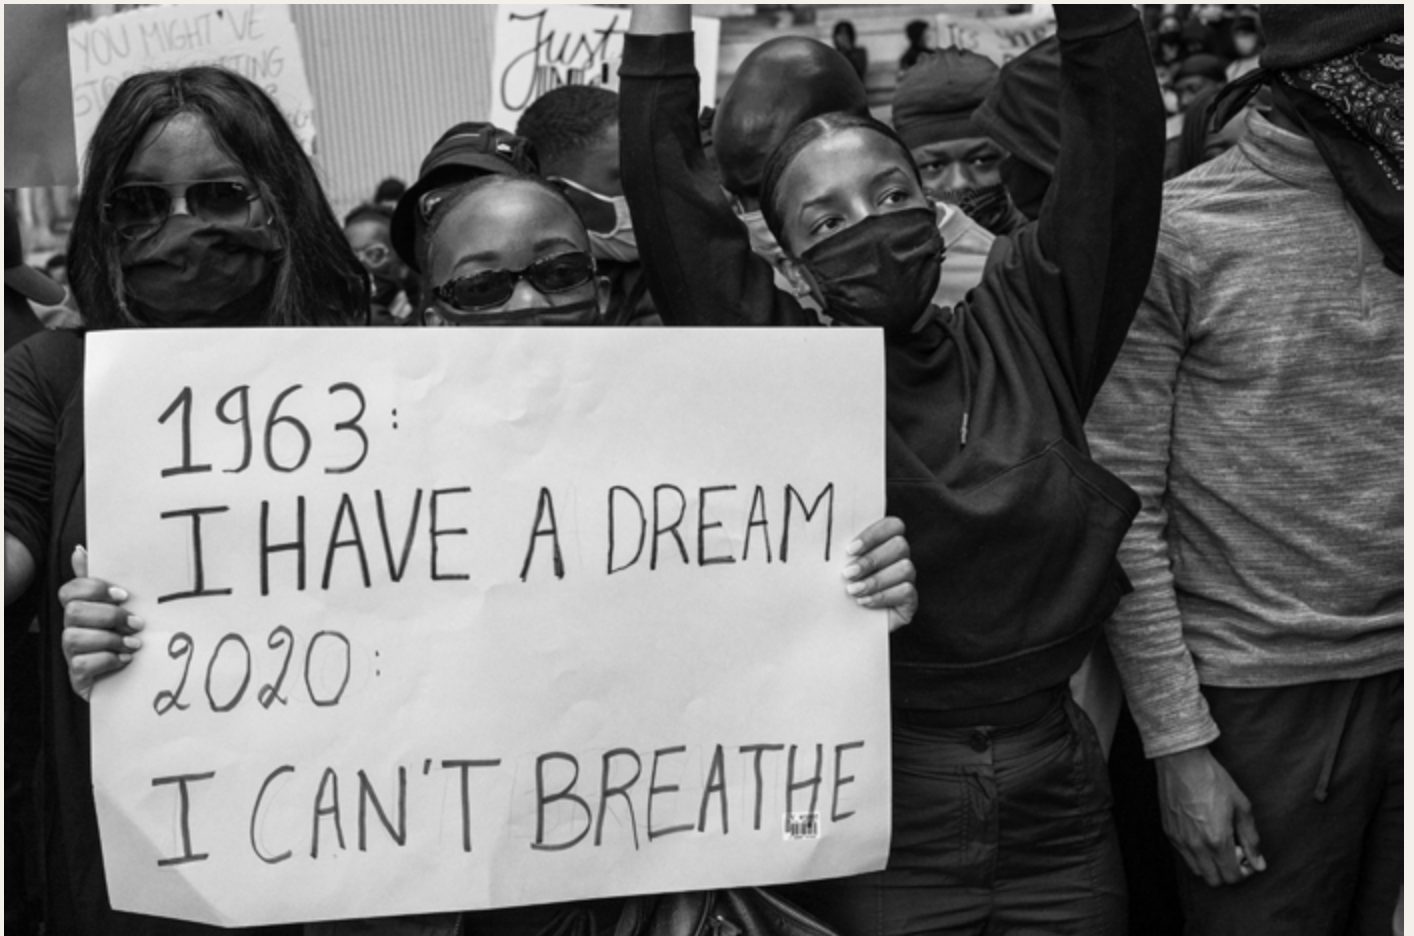 YOU MIGHT'VE
Just
1963:
I HAVE A DREAM
2020:
I CAN'T BREATHE